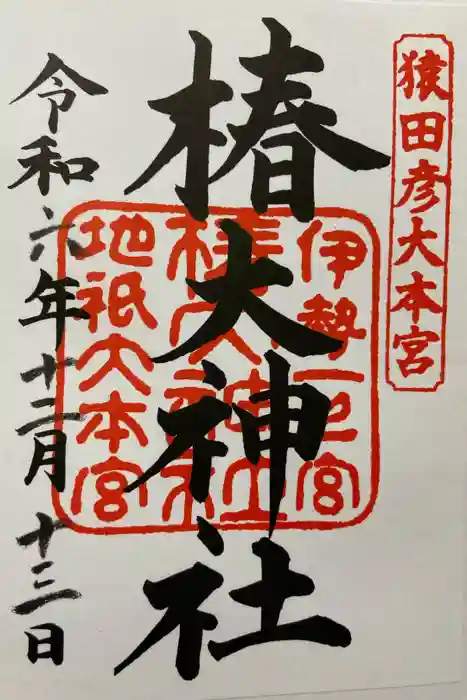 猿田彦大本宮
伊勢一宮
椿大神社
椿大神社
地祇大本宮
令和六年十二月十三日